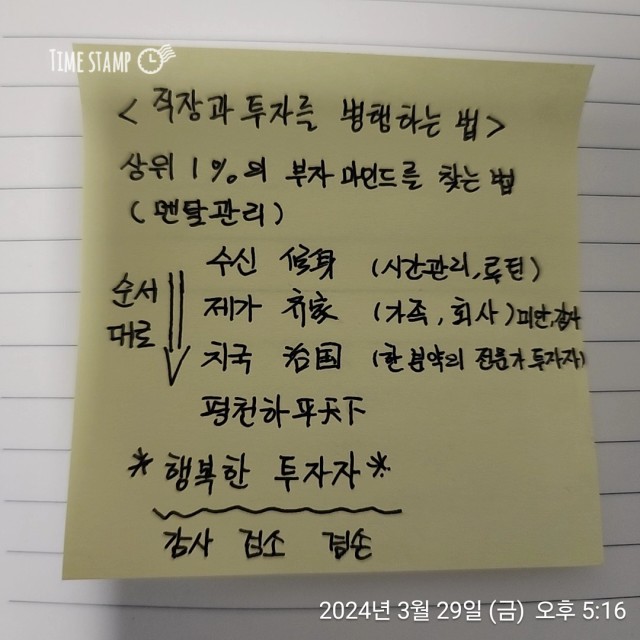 TIME STAMP
<직장과 투자를 병행하는 법>
상위 1%의 부자 마인드를 찾는 법
(멘탈관리)
순서
대로
수신 修身 (시간관리, 루틴)
제가 齐家 (가족, 회사) 미안, 감사
치국 治国 (한 분야의 전문가 투자자)
평천하 平天下
*행복한 투자자*
감사 검소 겸손
2024년 3월 29일 (금) 오후 5:16